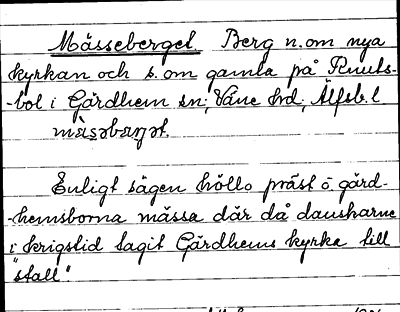 Mässeberget. Berg n. om nya
kyrkan och s. om gamla på Knuts-
-bol i Gärdhem sn; Väne hd; Älfsb. l
Enligt sägen höllo präst o. gärd-
-hemsborna mässa där då danskarne
i krigstid tagit Gärdhems kyrka till
"stall"